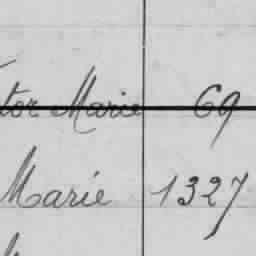 tor Marie 69
Marie 1327